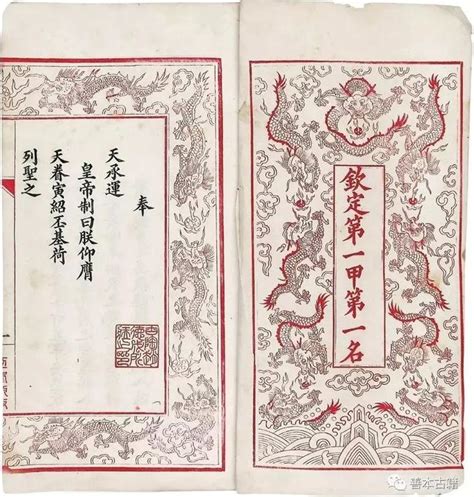 欽定第一甲第一名
奉
天承運
皇帝制曰朕仰膺
天眷寅紹丕基荷
列聖之
善本古籍